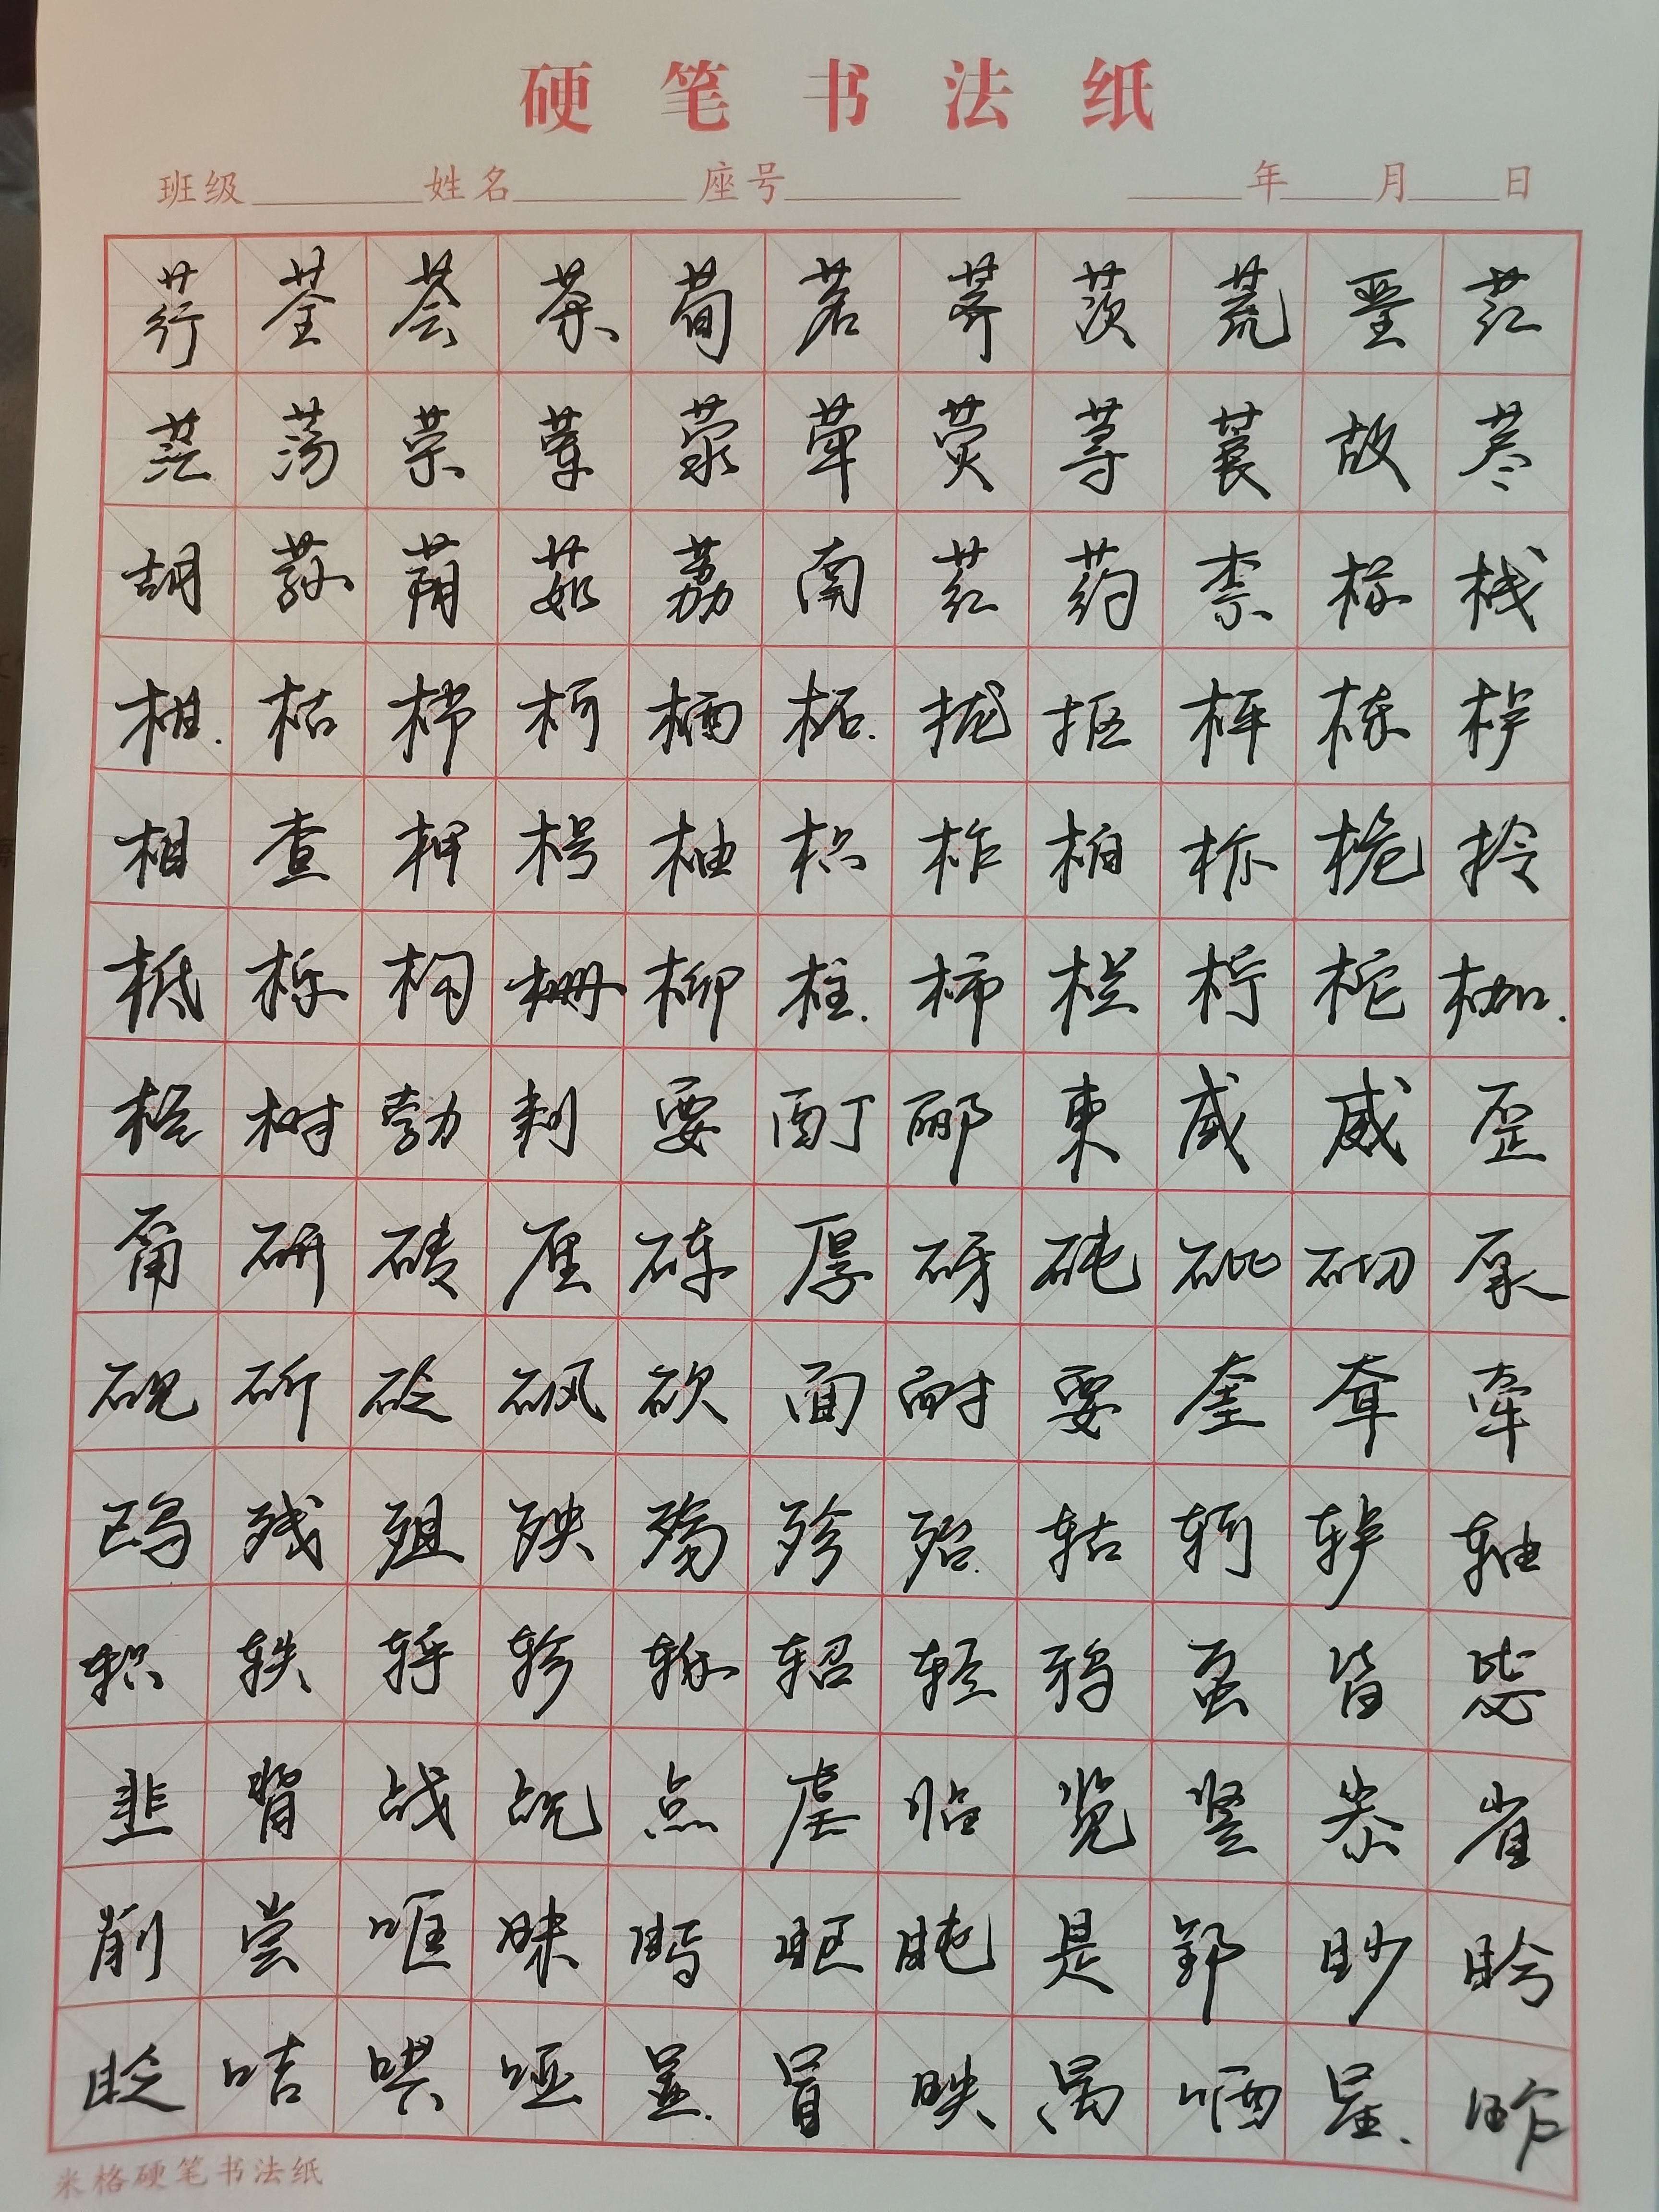 硬笔书法纸
班级 姓名 座号 年 月 日
荇荃荟荼荀茗荠茨荒垩茳
茫荡荣荤荥荦荧荨茛故荩
胡荪荫茹荔南荭药柰标栈
柑枯栉柯柄柘栊柩枰栋栌
相查柙枵柚枳柞柏柝栀柃
柢栎枸栅柳柱柿栏柠柁枷
柽树勃剌要酊郦柬咸威歪
甭研砖厘砗厚砑砘砒砌泵
砚斫砭砜砍面耐耍奎耷牵
鸥残殂殃殇殄殆轱轲轳轴
轵轶轷轸轹轺轻鸦虿皆毖
韭背战觇点虐临览竖尜省
削尝哐昧眄眍盹是郢眇眊
眨咭哄哑显冒映禺哂星昨
米格硬笔书法纸